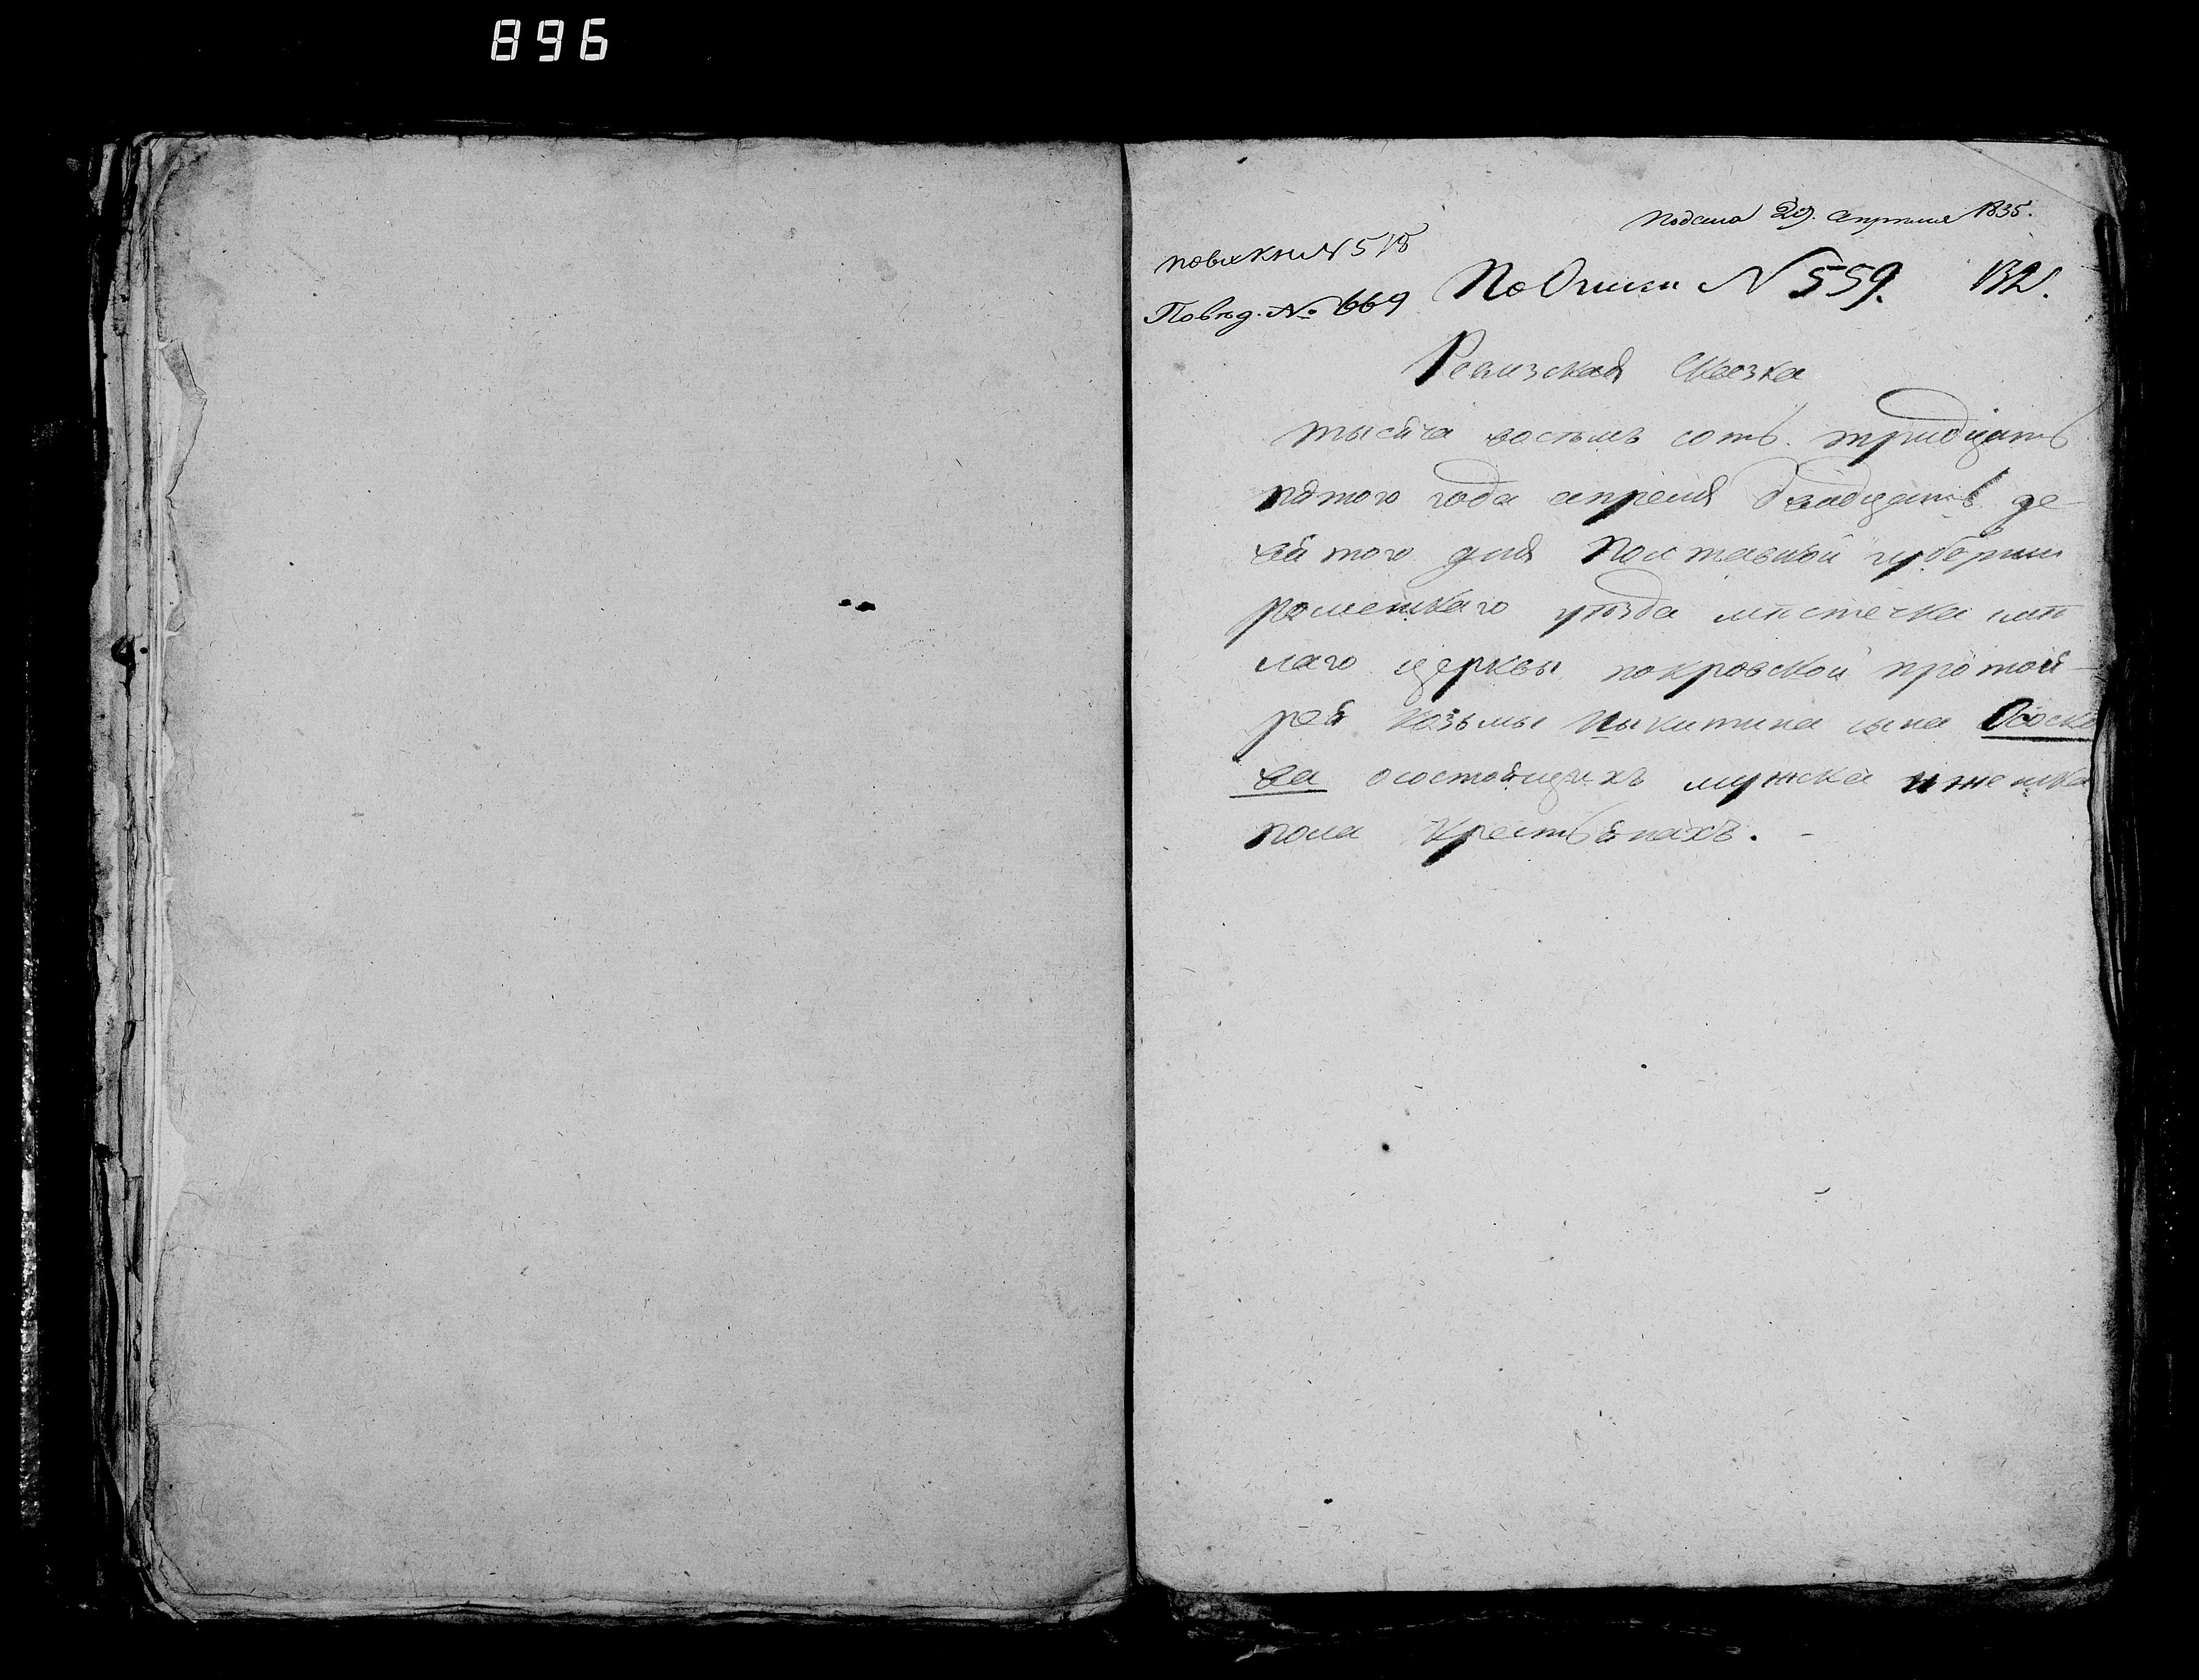 896
Подана 29. апреля 1835.
повх Кни N 518
По Описи N 559. 132.
По вѣд. № 669
Ревизская Сказка
тысяча восемъ сотъ тридцать
пятого года апреля двадцать де
вятого дня Полтавской губернии
роменского уѣзда местечка смѣ
лаго церквы покровской протоие
рея Козьмы Никитина сына Ососко
ва осостоящихъ мужска и женска
пола Крестьянахъ. -